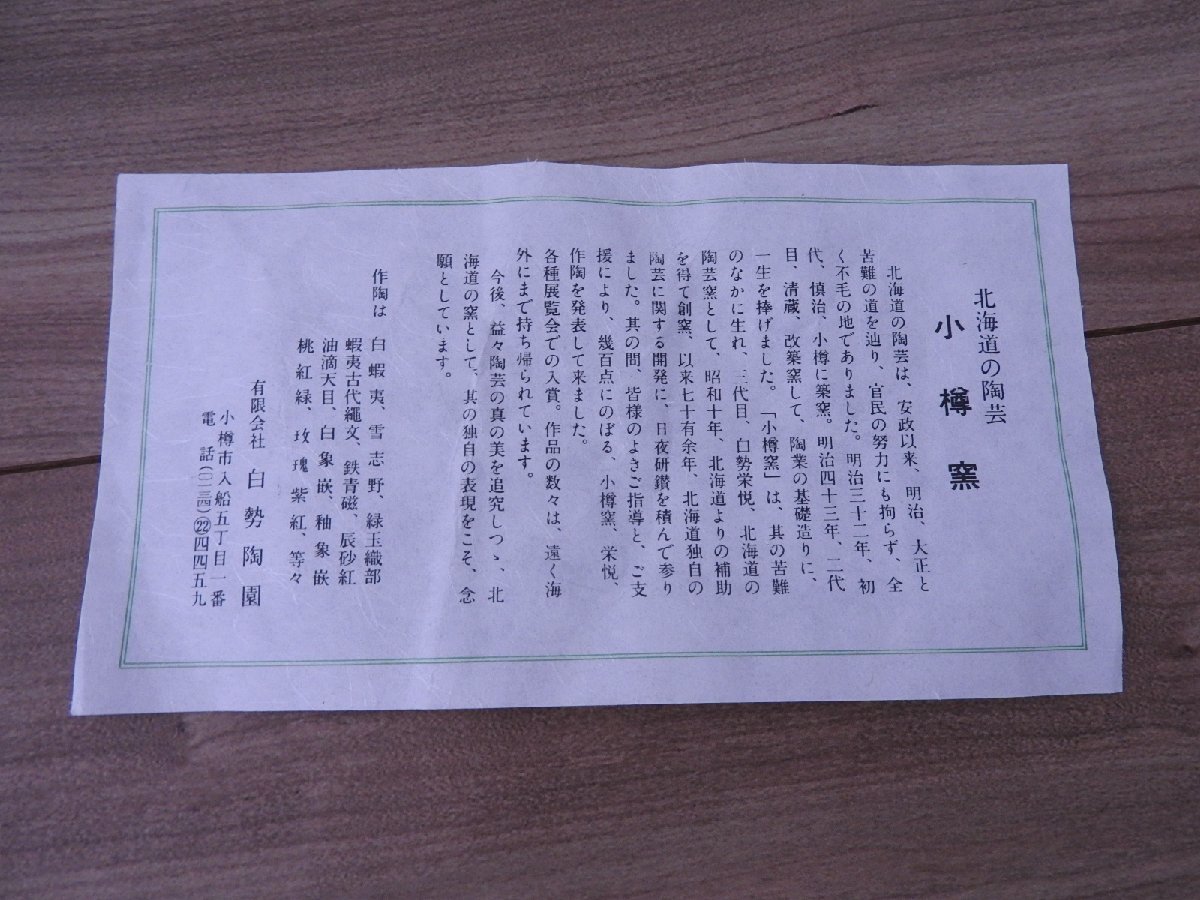 北海道の陶芸
小樽窯
北海道の陶芸は、安政以来、明治、大正と
苦難の道を辿り、官民の努力にも拘らず、全
く不毛の地でありました。明治三十二年、初
代、慎治、小樽に築窯。明治四十三年、二代
目、清蔵、改築窯して、陶業の基礎造りに、
一生を捧げました。「小樽窯」は、其の苦難
のなかに生れ、三代目、白勢栄悦、北海道の
陶芸窯として、昭和十年、北海道よりの補助
を得て創窯、以来七十有余年、北海道独自の
陶芸に関する開発に、日夜研鑽を積んで参り
ました。其の間、皆様のよきご指導と、ご支
援により、幾百点にのぼる、小樽窯、栄悦、
作陶を発表して来ました。
各種展覧会での入賞。作品の数々は、遠く海
外にまで持ち帰られています。
今後、益々陶芸の真の美を追究しつゝ、北
海道の窯として、其の独自の表現をこそ、念
願としています。
作陶は 白蝦夷、雪志野、緑玉織部
蝦夷古代縄文、鉄青磁、辰砂紅
油滴天目、白象嵌、釉象嵌
桃紅緑、玫瑰紫紅、等々
有限会社 白勢陶園
小樽市入船五丁目一番
電話(〇一三四)㉒四四五九